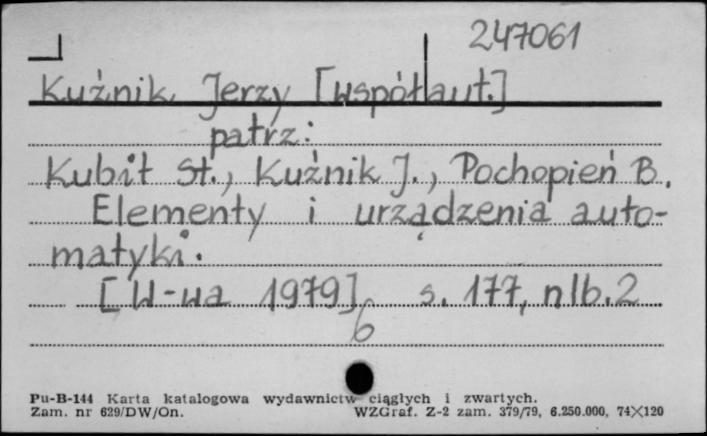 247061
Kuźnik Jerzy [współaut.]
patrz:
Kubit St., Kuźnik J., Pochopień B.
Elementy i urządzenia auto-
matyki.
[W-wa 1979] s. 177, nlb. 2
6
Pu-B-144 Karta katalogowa wydawnictw ciągłych i zwartych.
Zam. nr 629/DW/On. WZGraf. Z-2 zam. 379/79, 6.250.000, 74×120